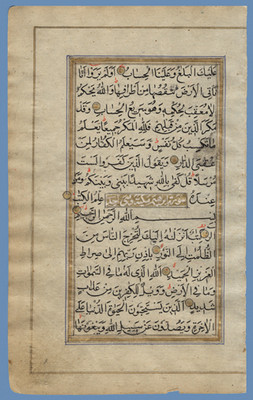 عليك البلغ وعلينا الحساب اولم يروا انا
ناتي الارض ننقصها من اطرافها والله يحكم
لا معقب لحكمه وهو سريع الحساب وقد
مكر الذين من قبلهم فلله المكر جميعا يعلم
ما تكسب كل نفس وسيعلم الكفار لمن
عقبى الدار ويقول الذين كفروا لست
مرسلا قل كفى بالله شهيدا بيني وبينكم ومن
عنده علم الكتب
بسم الله الرحمن الرحيم
الر كتب انزلنه اليك لتخرج الناس من
الظلمت الى النور باذن ربهم الى صراط
العزيز الحميد الله الذي له ما في السموات
وما في الارض وويل للكفرين من عذاب
شديد الذين يستحبون الحيوة الدنيا على
الاخرة ويصدون عن سبيل الله ويبغونها